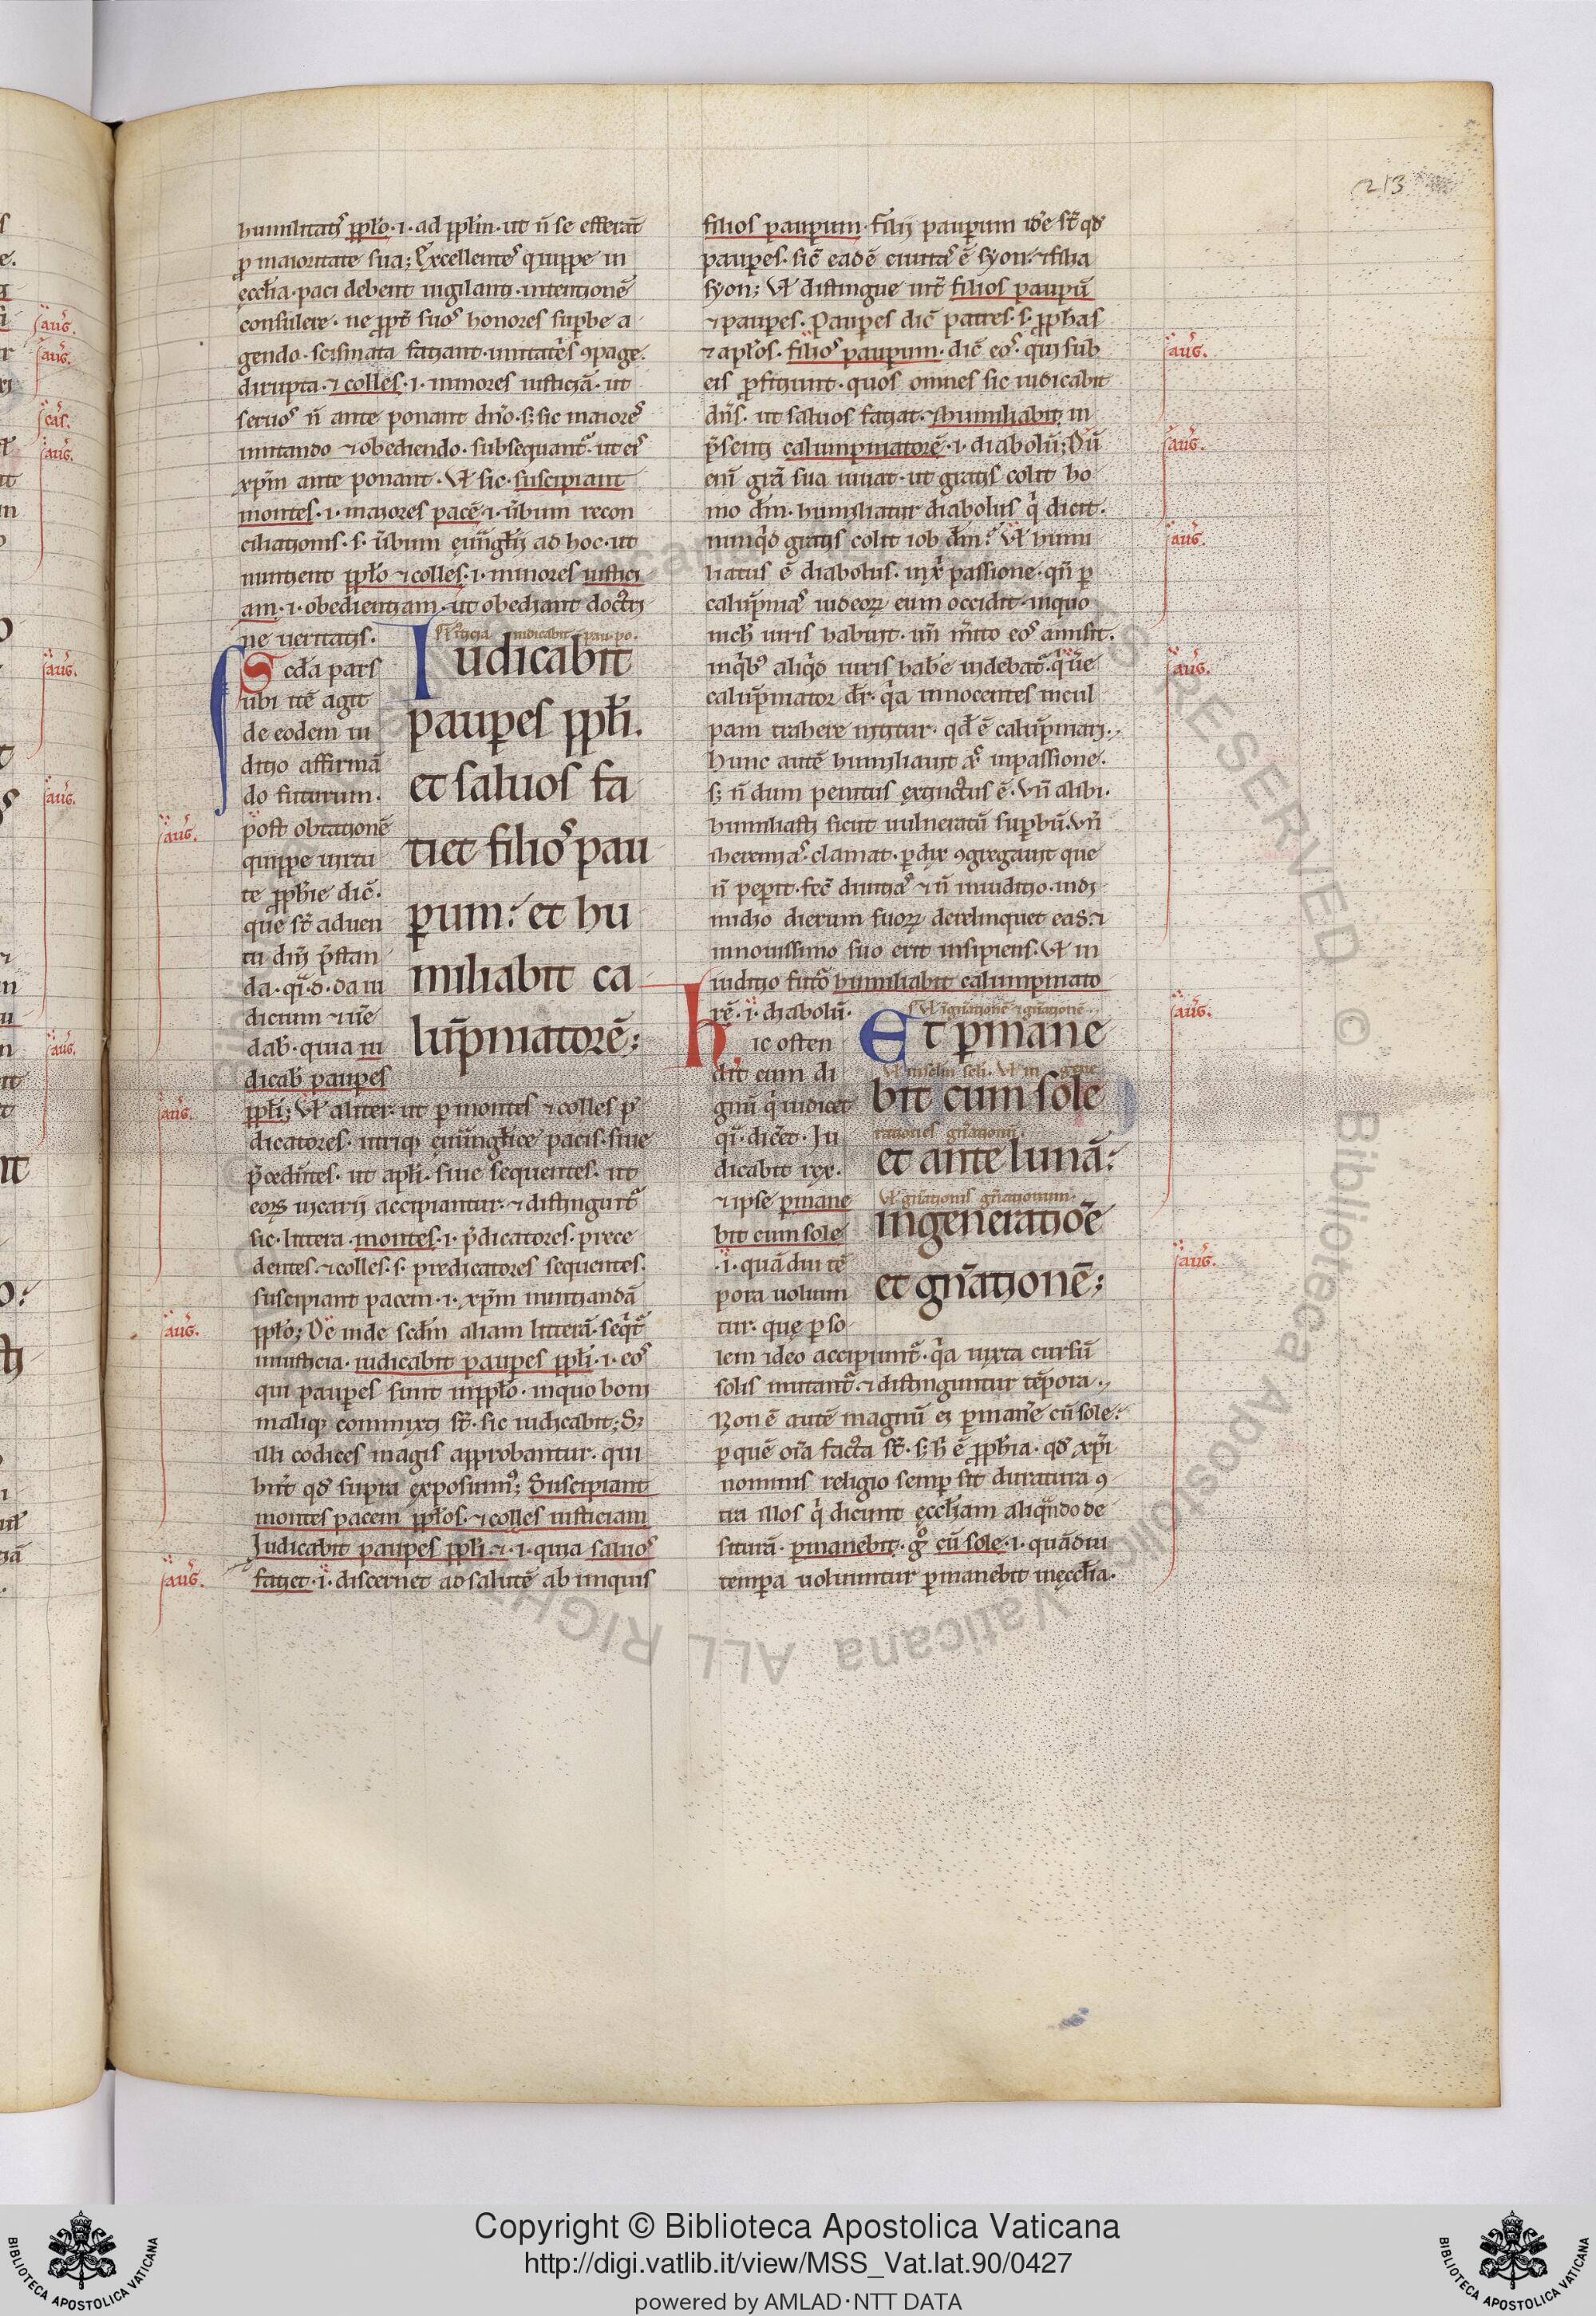 213
humilitatis pplo · i · ad pplm · ut ñ se efferāt
p maioritate sua; Excellentes quippe in
ecclia · paci debent uigilanti · intentionē
consulere · ne ppt suos honores supbe a
gendo · scismata faciant · unitatis compage
dirupta · & colles · i · minores iusticiā · ut
seruos ñ ante ponant dño · s; sic maiores
imitando & obediendo · subsequant · ut eis
xpm ante ponant · Vl sic · suscipiant
montes · i · maiores pacē · i · ūbum recon
ciliationis · s · ūbum euuglii ad hoc · ut
nuntient pplo & colles · i · minores iustici
am · i · obedientiam · ut obediant doctri
ne ueritatis ·
Scda pars
ubi itē agit
de eodem iu
ditio affirmā
do futurum ·
post obtationē
quippe uirtu
te pphie dic̄ ·
que st aduen
tu dni p̄stan
da · qi · d · da iu
dicium & ue
dab · quia iu
dicab paupes
ppli; Vl aliter · ut p montes & colles p̄
dicatores · utriq; euuglice pacis · siue
p̄cedētes · ut apli · siue sequentes · ut
eorum uicarii accipiantur · & distinguit
sic · littera · montes · i · p̄dicatores · prece
dentes · & colles · s · predicatores sequentes ·
suscipiant pacem · i · xpm nuntiandā
pplo; De inde scdm aliam litterā · seqt
iniusticia · iudicabit paupes ppli · i · eos
qui paupes sunt inpplo · inquo boni
maliq; commixti st · sic iudicabit; S;
illi codices magis approbantur · qui
hnt qd supra exposuim; Suscipiant
montes pacem pplos · & colles iusticiam
Iudicabit paupes ppli · & · i · quia saluos
faciet · i · discernet ad salutē ab iniquis
Iudicabit
paupes ppli ·
et saluos fa
ciet filios pau
perum : et hu
miliabit ca
lūpniatorē;
filios pauperum · filii pauperum idē st qd
paupes · sic̄ eadē ciuitas ē syon · & filia
syon; Vl distingue int filios paupū
& paupes · Paupes dic̄ patres · s · pphas
& aplos · filios pauperum · dic̄ eos · qui sub
eis pficiunt · quos omnes sic iudicabit
dns · ut saluos faciat · & humiliabit in
p̄senti calumpniatorē · i · diabolū; Dū
eni grā sua iuuat · ut gratis colit ho
mo dm · humiliatur diabolus q dicit ·
nunqd gratis colit iob dm? Vl humi
liatus ē diabolus · in xpi passione · qn p
calūpnias iudeorum eum occidit · inquo
nich iuris habuit · un m̄ito eos amisit ·
inqbus aliqd iuris habe uidebat · q ue
calūpniator dr · qa innocentes incul
pam trahere nititur · qd ē calūpniari ·
hunc autē humiliauit xps inpassione ·
s; ñ dum penitus extinctus ē · Vn alibi ·
humiliasti sicut uulneratū supbū · Vn
iheremias · clamat · pdix congregauit que
ñ peperit · fec̄ diuitias & ñ iniuditio · indi
midio dierum suorum derelinquet eas · &
innouissimo suo erit insipiens · Vl in
iuditio futo humiliabit calumpniato
rē · i · diabolū ·
hic osten
dit eum di
gnū q iudicet
qi · diceet · Iu
dicabit rex ·
& ipse pmane
bit cum sole
· i · quādiu tē
pora uoluun
tur · que p so
lem ideo accipiunt · qa iuxta cursū
solis mutant · & distinguntur tēpora ·
Non ē autē magnū ei pmane cū sole ·
p quē oīa facta st · s; h ē pphia · qd xpi
nominis religio semp sit duratura con
tra illos q dicunt eccliam aliqndo de
siturā · pmanebit · g cū sole · i · quādiu
tempora uoluuntur pmanebit inecclia ·
Et pmane
bit cum sole
et ante lunā :
ingeneratiōe
et gnationē;
aug.
aug.
aug.
aug.
aug.
aug.
aug.
aug.
aug.
aug.
Copyright © Biblioteca Apostolica Vaticana
http://digi.vatlib.it/view/MSS_Vat.lat.90/0427
powered by AMLAD·NTT DATA
BIBLIOTECA APOSTOLICA VATICANA
BIBLIOTECA APOSTOLICA VATICANA